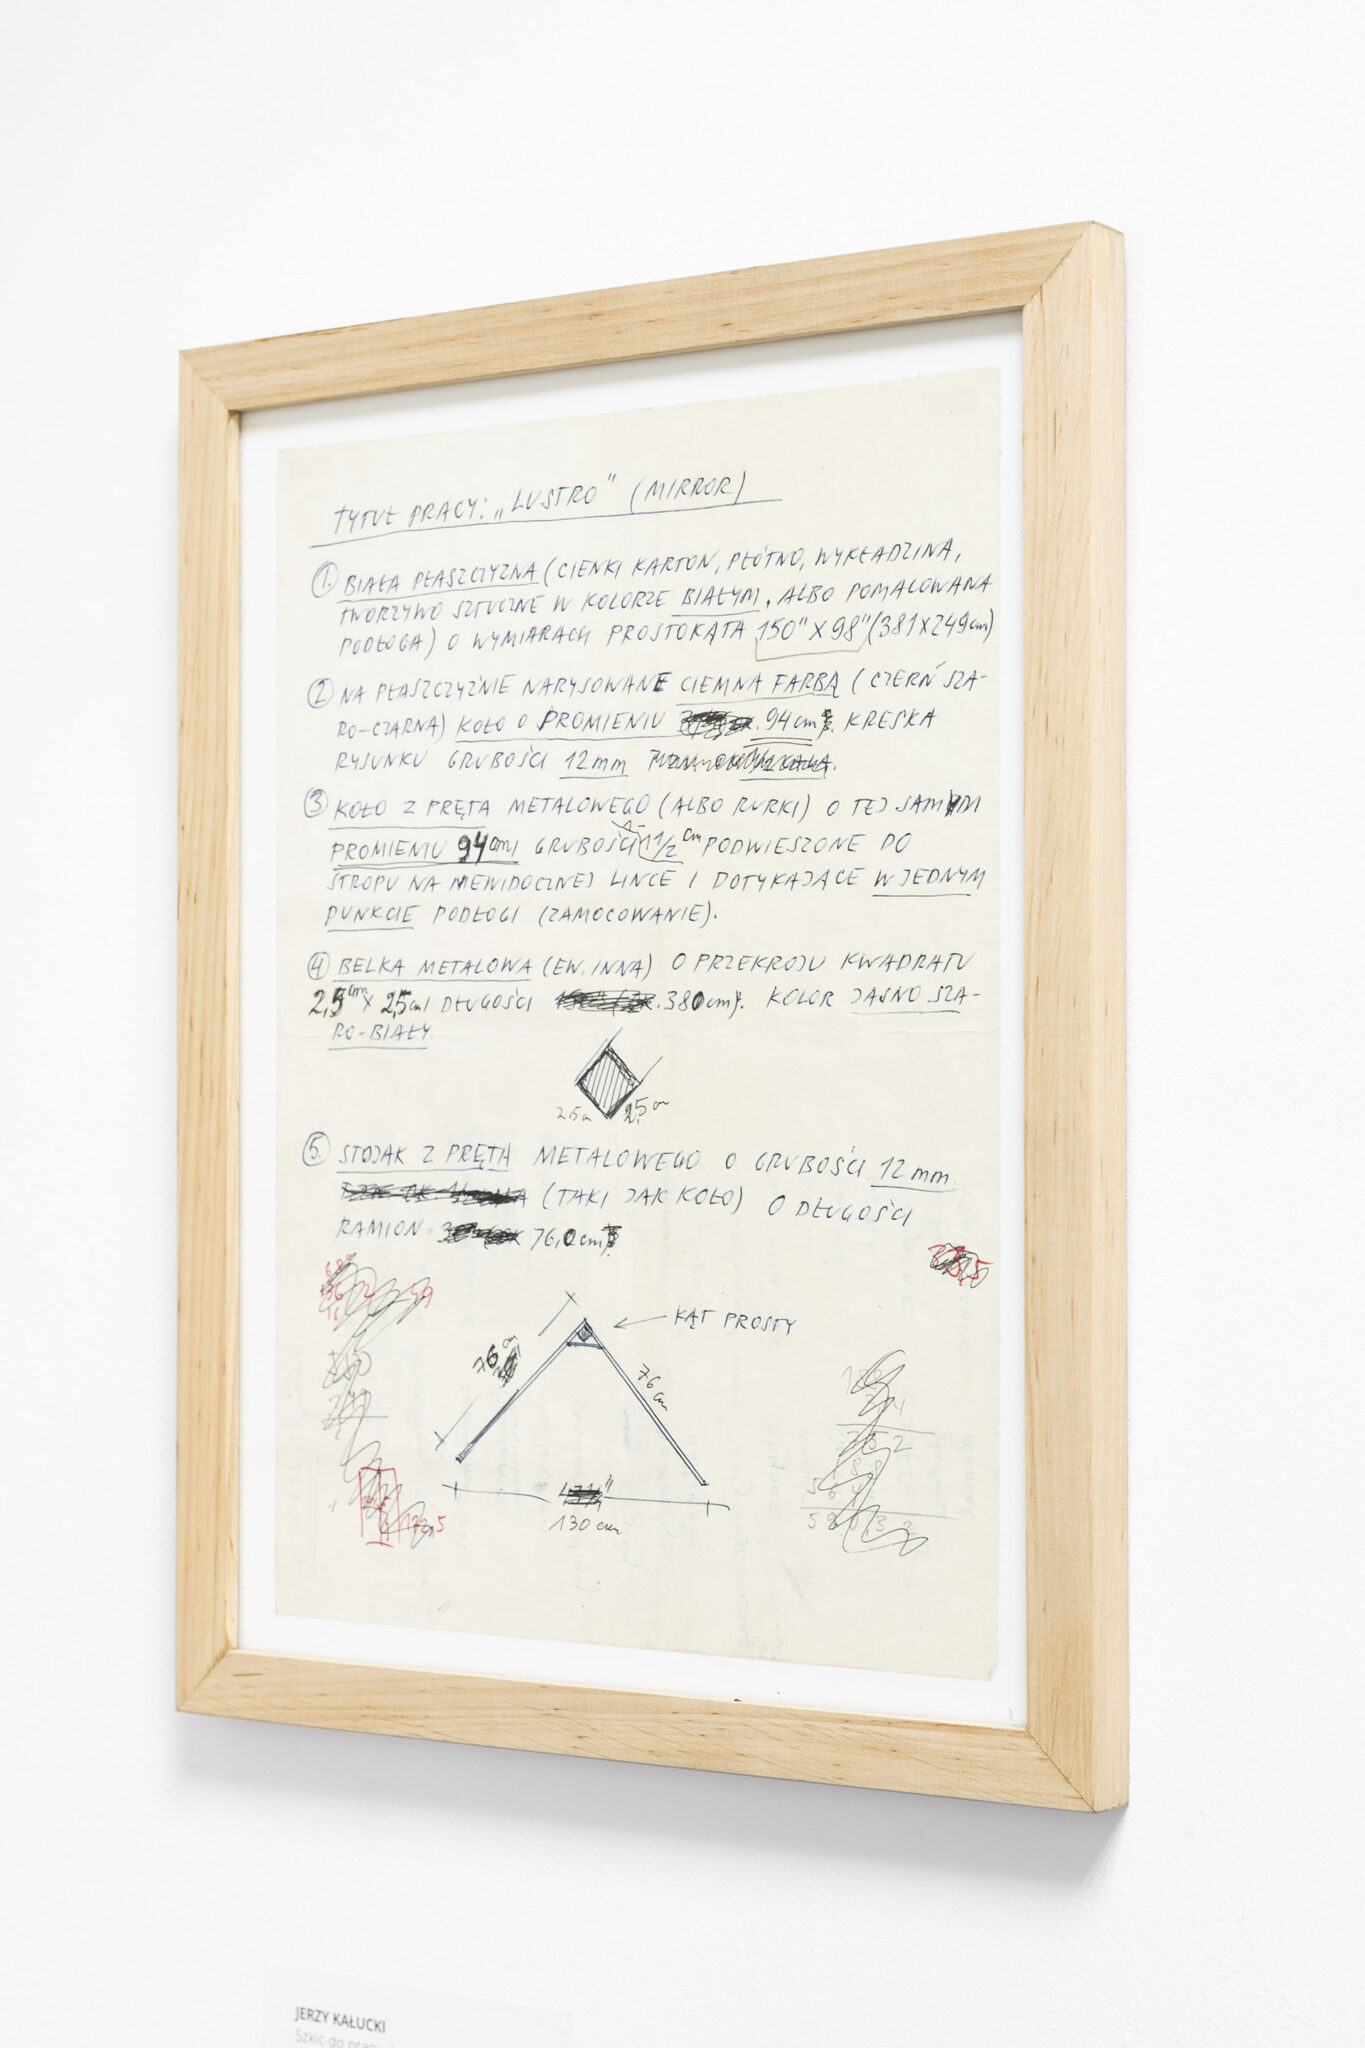 TYTUŁ PRACY: „LUSTRO" (MIRROR)
1. BIAŁA PŁASZCZYZNA (CIENKI KARTON, PŁÓTNO, WYKŁADZINA,
TWORZYWO SZTUCZNE W KOLORZE BIAŁYM, ALBO POMALOWANA
PODŁOGA) O WYMIARACH PROSTOKĄTA 150" X 98" (381 X 249 cm)
2 NA PŁASZCZYŹNIE NARYSOWANE CIEMNA FARBĄ (CZERŃ SZA-
RO-CZARNA) KOŁO O PROMIENIU 94 cm. KRESKA
RYSUNKU GRUBOŚCI 12 mm
3 KOŁO Z PRĘTA METALOWEGO (ALBO RURKI) O TEJ SAMYM
PROMIENIU 94 cm GRUBOŚCI 1 1/2 cm PODWIESZONE DO
STROPU NA NIEWIDOCZNEJ LINCE I DOTYKAJĄCE W JEDNYM
PUNKCIE PODŁOGI (ZAMOCOWANIE).
4 BELKA METALOWA (EW. INNA) O PRZEKROJU KWADRATU
2,5 cm X 2,5 cm DŁUGOŚCI 380 cm. KOLOR JASNO SZA-
RO-BIAŁY.
2,5 cm 2,5 cm
5. STOJAK Z PRĘTA METALOWEGO O GRUBOŚCI 12 mm
(TAKI JAK KOŁO) O DŁUGOŚCI
RAMION 76,0 cm.
KĄT PROSTY
76 cm
76 cm
130 cm
JERZY KAŁUCKI
Szkic do pracy